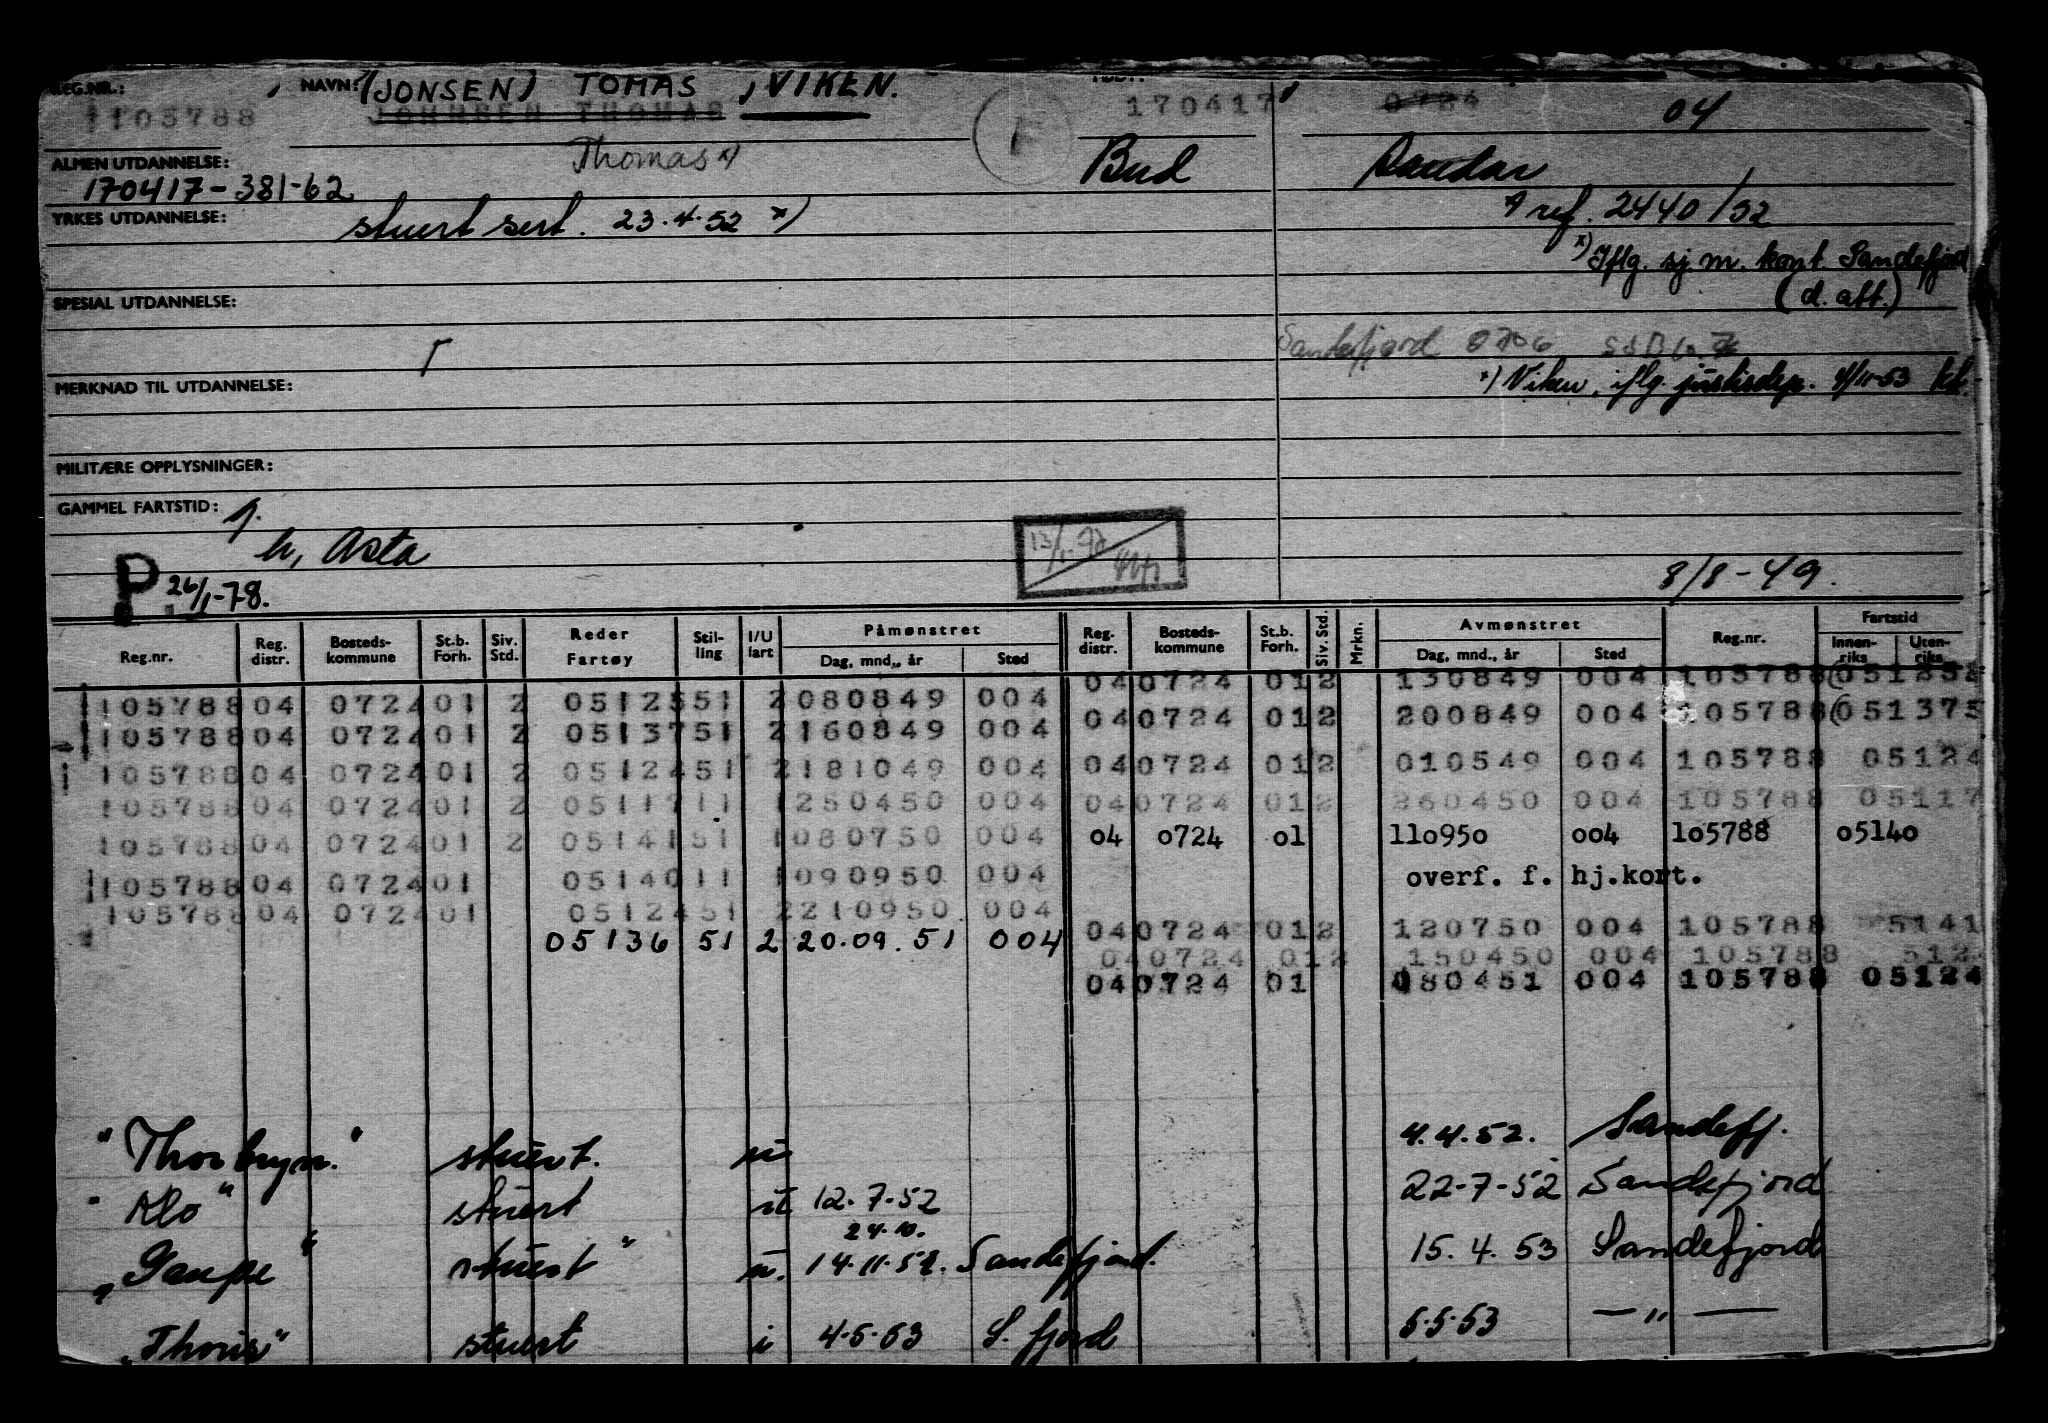 REG.NR.: NAVN: (JONSEN) TOMAS , VIKEN.
105788 JOHNSEN THOMAS 170417 0724 04
Thomas x)
ALMEN UTDANNELSE: Bud Sandar
170417-381-62
YRKES UTDANNELSE: ref. 2440/52
stuert sert. 23.4.52 x)
x) Iflg. sj.m. kont. Sandefjord
(d. aft.)
SPESIAL UTDANNELSE:
Sandefjord 0706
MERKNAD TIL UTDANNELSE: x) Viken, iflg. justisdep. 4/11-53
MILITÆRE OPPLYSNINGER:
GAMMEL FARTSTID:
h, Asta
P. 26/1-78. 8/8-49.
Reg.nr. Reg. distr. Bosteds-kommune St.b. Forh. Siv. Std. Reder Fartøy Stil-ling I/U fart Påmønstret Dag, mnd., år Sted Reg. distr. Bosteds-kommune St.b. Forh. Siv. Std. Mrkn. Avmønstret Dag, mnd., år Sted Reg.nr. Fartstid Innen-riks Uten-riks
040724 012 130849 004 105788
105788 04 0724 01 2 05125 51 2 080849 004
040724 012 200849 004 105788 051375
105788 04 0724 01 2 05137 51 2 160849 004
105788 04 0724 01 2 05124 51 2 181049 004 040724 012 010549 004 105788 05124
105788 04 0724 01 2 05117 11 1 250450 004 040724 012 260450 004 105788 05117
105788 04 0724 01 2 05141 51 1 080750 004 04 0724 01 110950 004 105788 05140
105788 04 0724 01 05140 11 1 090950 004 overf. f. hj.kort.
105788 04 0724 01 05124 51 2 210950 004
040724 012 120750 004 105788 5141
05136 51 2 20.09.51 004
040724 012 150450 004 105788 512
040724 01 080451 004 105788 05124
"Thorbryn." stuert. u 4.4.52. Sandefj.
"Klo" stuert ut 12.7-52 22-7-52 Sandefjord
24.10.
"Gaupe" stuert " u. 14.11.52. Sandefjord. 15.4.53 Sandefjord
"Thoris" stuert i 4.5.53 S. fjord 5.5.53 — " —